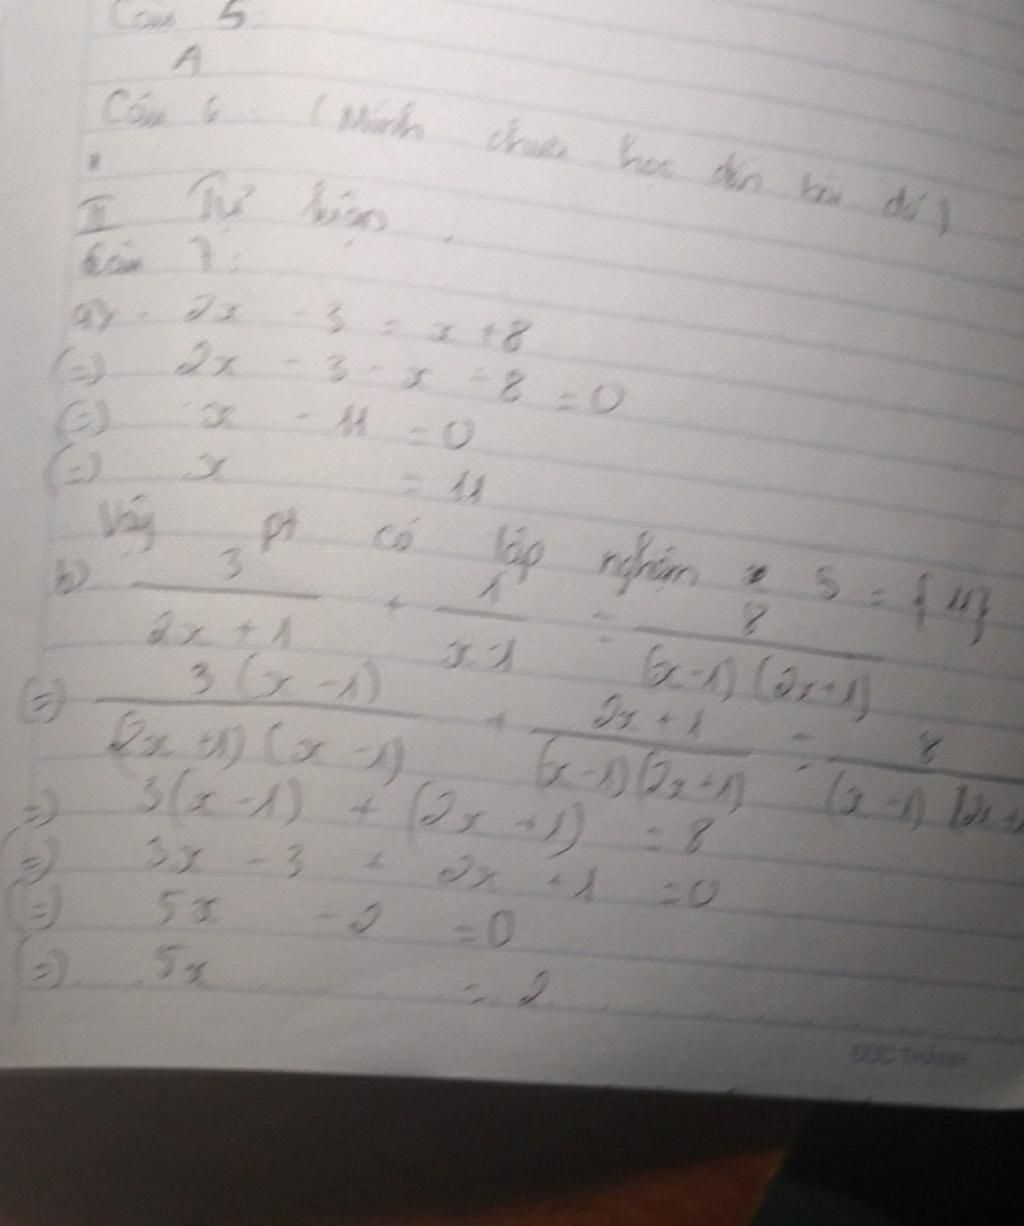 Câu 5
A
Câu 6: (Mình chưa học đến bài đó)
II Tự luận.
Câu 7:
a) 2x - 3 = x + 8
(=) 2x - 3 - x - 8 = 0
(=) x - 11 = 0
(=) x = 11
Vậy pt có tập nghiệm S = {11}
b) 3/(2x + 1) + 1/(x-1) = 8/((x-1)(2x+1))
(=) 3(x-1)/((2x+1)(x-1)) + (2x+1)/((x-1)(2x+1)) = 8/((x-1)(2x+
=) 3(x-1) + (2x+1) = 8
=) 3x - 3 + 2x + 1 = 0
(=) 5x - 2 = 0
(=) 5x = 2